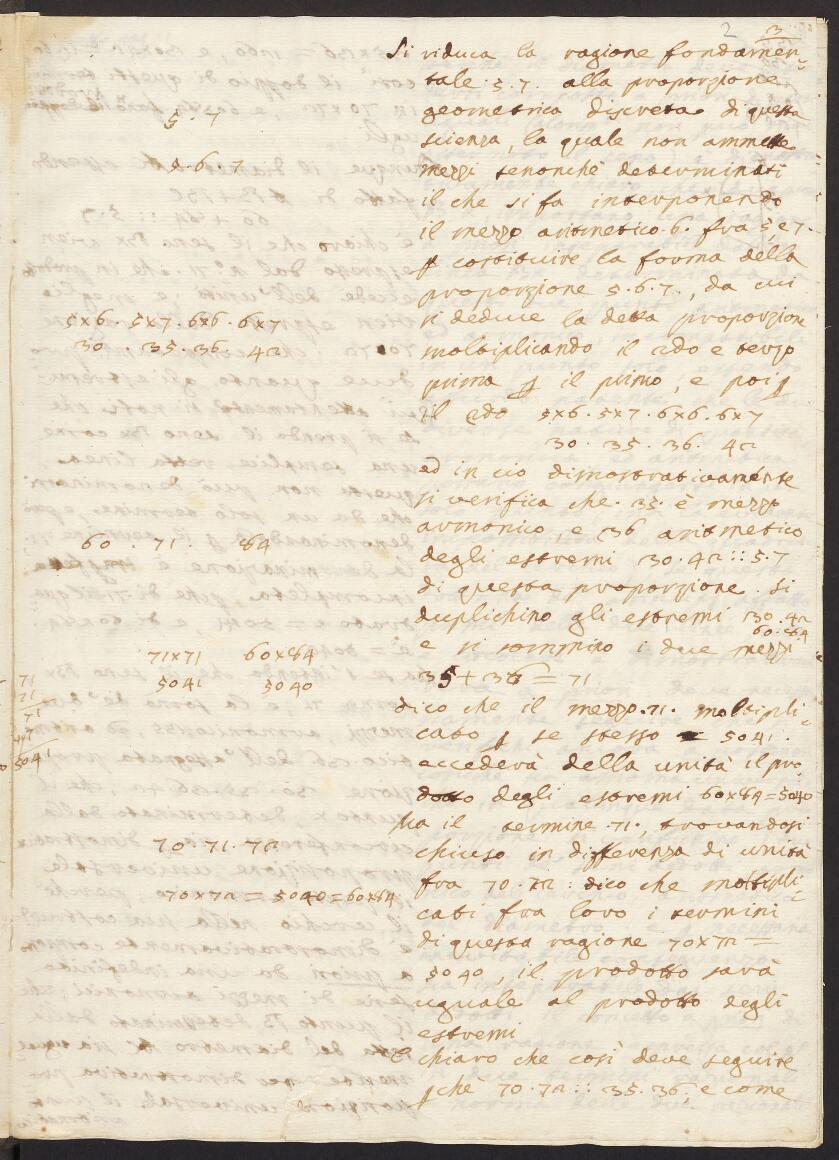 2 3
Si riduca la ragione fondamen-
tale 5.7. alla proporzione
geometrica discreta di questa
scienza, la quale non ammette
mezzi senonchè determinati
il che si fa interponendo
il mezzo aritmetico 6. fra 5 e 7.
p costituire la forma della
proporzione 5.6.7., da cui
si deduce la detta proporzione
moltiplicando il 2do e terzo
prima p il primo, e poi p
il 2do 5x6. 5x7. 6x6. 6x7
30. 35. 36. 42
ed in ciò dimostrativamente
si verifica che 35. è mezzo
armonico, e 36 aritmetico
degli estremi 30.42::5.7
di questa proporzione. Si
duplichino gli estremi 30.42
60.84
e si sommino i due mezzi
35+36=71
dico che il mezzo 71. moltipli-
cato p se stesso = 5041.
eccederà della unità il pro-
dotto degli estremi 60x84=5040
Ma il termine 71., trovandosi
chiuso in differenza di unità
fra 70.72: dico che moltipli-
cati fra loro i termini
di questa ragione 70x72=
5040, il prodotto sarà
uguale al prodotto degli
estremi
È chiaro che così deve seguire
pchè 70.72::35.36, e come
5.7
5.6.7
5x6. 5x7. 6x6. 6x7
30. 35. 36. 42
60. 71. 84
71x71 60x84
5041 5040
71
71
71
497
5041
70.71.72
70x72=5040=60x84